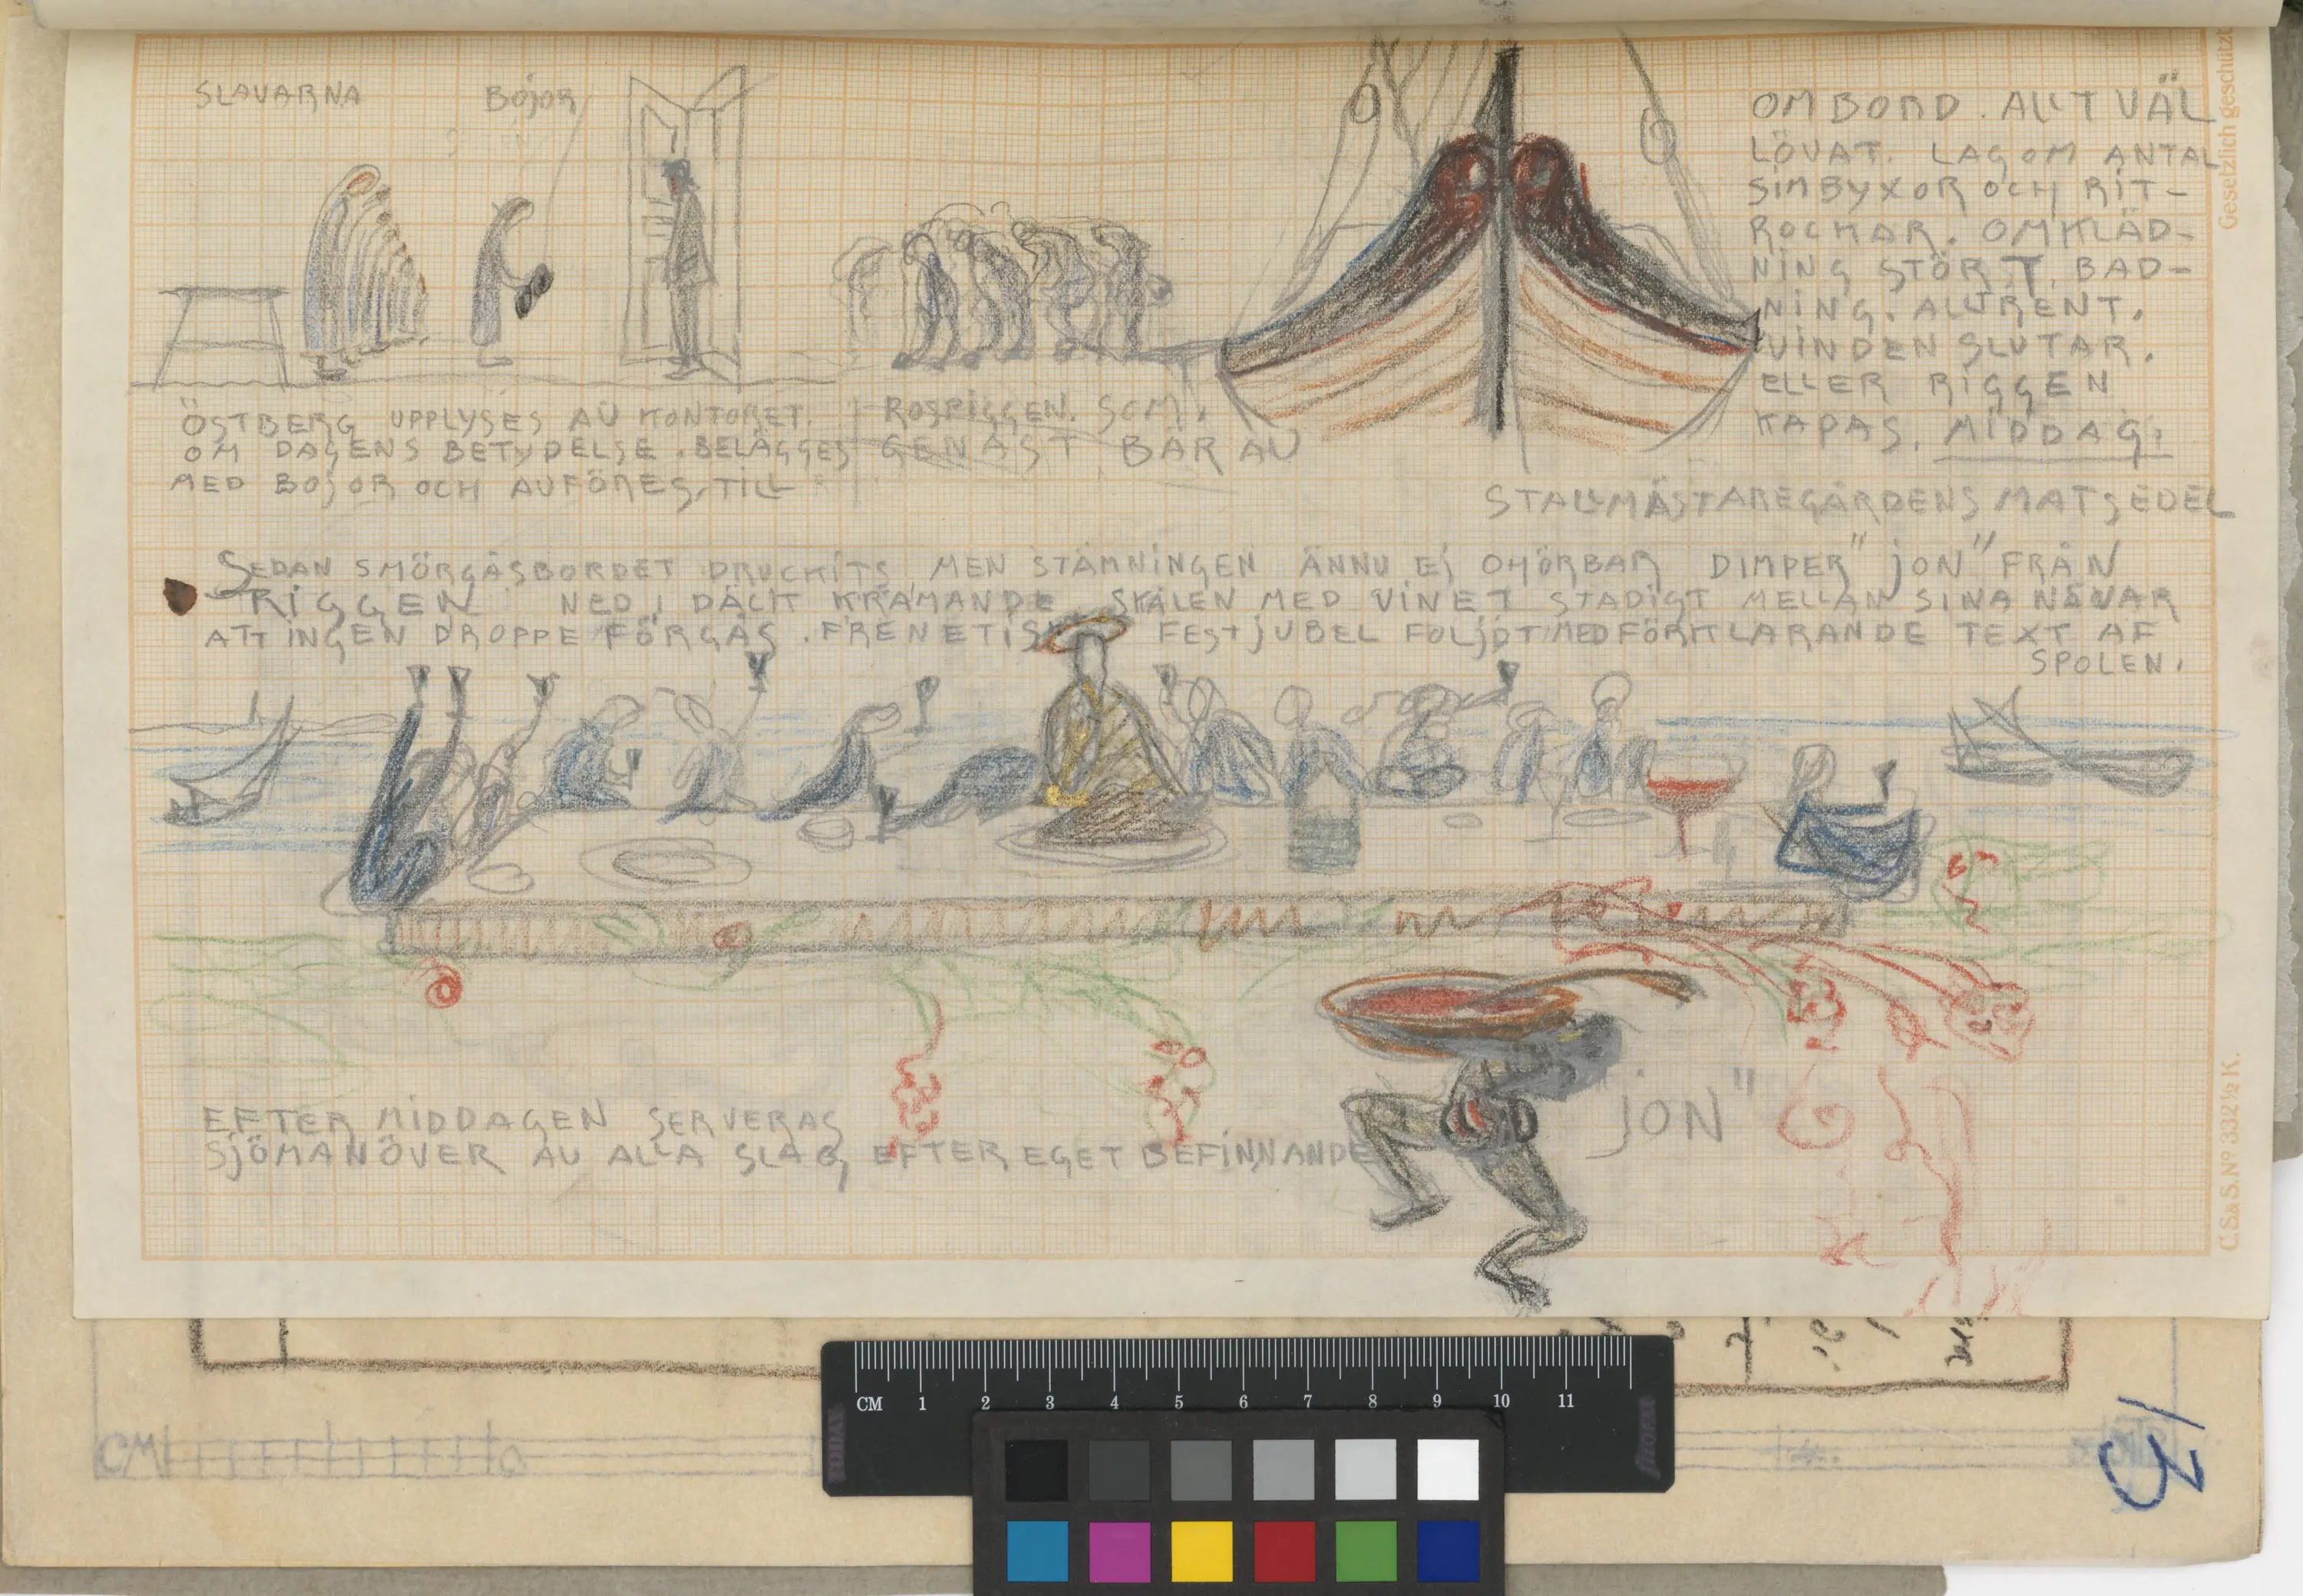 SLAVARNA BOJOR
ÖSTBERG UPPLYSES AV KONTORET.
OM DAGENS BETYDELSE. BELÄGGES
MED BOJOR OCH AVFÖRES, TILL
ROSPIGGEN. SOM,
GENAST BÄR AV
OMBORD. ALLT VÄL
LÖVAT. LAGOM ANTAL
SIMBYXOR OCH RIT-
ROCKAR. OMKLÄD-
NING STÖRT. BAD-
NING. ALLT RENT.
VINDEN SLUTAR.
ELLER RIGGEN
KAPAS. MIDDAG:
STALLMÄSTAREGÅRDENS MATSEDEL
SEDAN SMÖRGÅSBORDET DRUCKITS, MEN STÄMNINGEN ÄNNU EJ OHÖRBAR DIMPER "JON" FRÅN
RIGGEN NED I DÄCK KRAMANDE SKÅLEN MED VINET STADIGT MELLAN SINA NÄVAR
ATT INGEN DROPPE FÖRGÅS. FRENETISKT FESTJUBEL FÖLJDT MED FÖRKLARANDE TEXT AF
SPOLEN.
"JON"
EFTER MIDDAGEN SERVERAS
SJÖMANÖVER AV ALLA SLAG EFTER EGET BEFINNANDE
Gesetzlich geschützt
C.S.&S.Nº 332½ K.
CM 1 2 3 4 5 6 7 8 9 10 11
CM